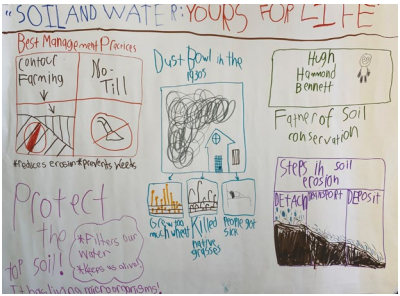 "SOIL AND WATER: YOURS FOR LIFE
Best Management Practices
Contour
Farming
No-
Till
*reduces erosion *prevents
Protect
the
top soil!
*Filters our
water
*Keeps us alive!
It has living microorganisms!
Dust Bowl in the
1930s
Grew too
much wheat
Killed
native
grasses
People got
sick
Hugh
Hammond
Bennett
Father of Soil
conservation
Steps in soil
erosion
DETACH
TRANSPORT
DEPOSIT